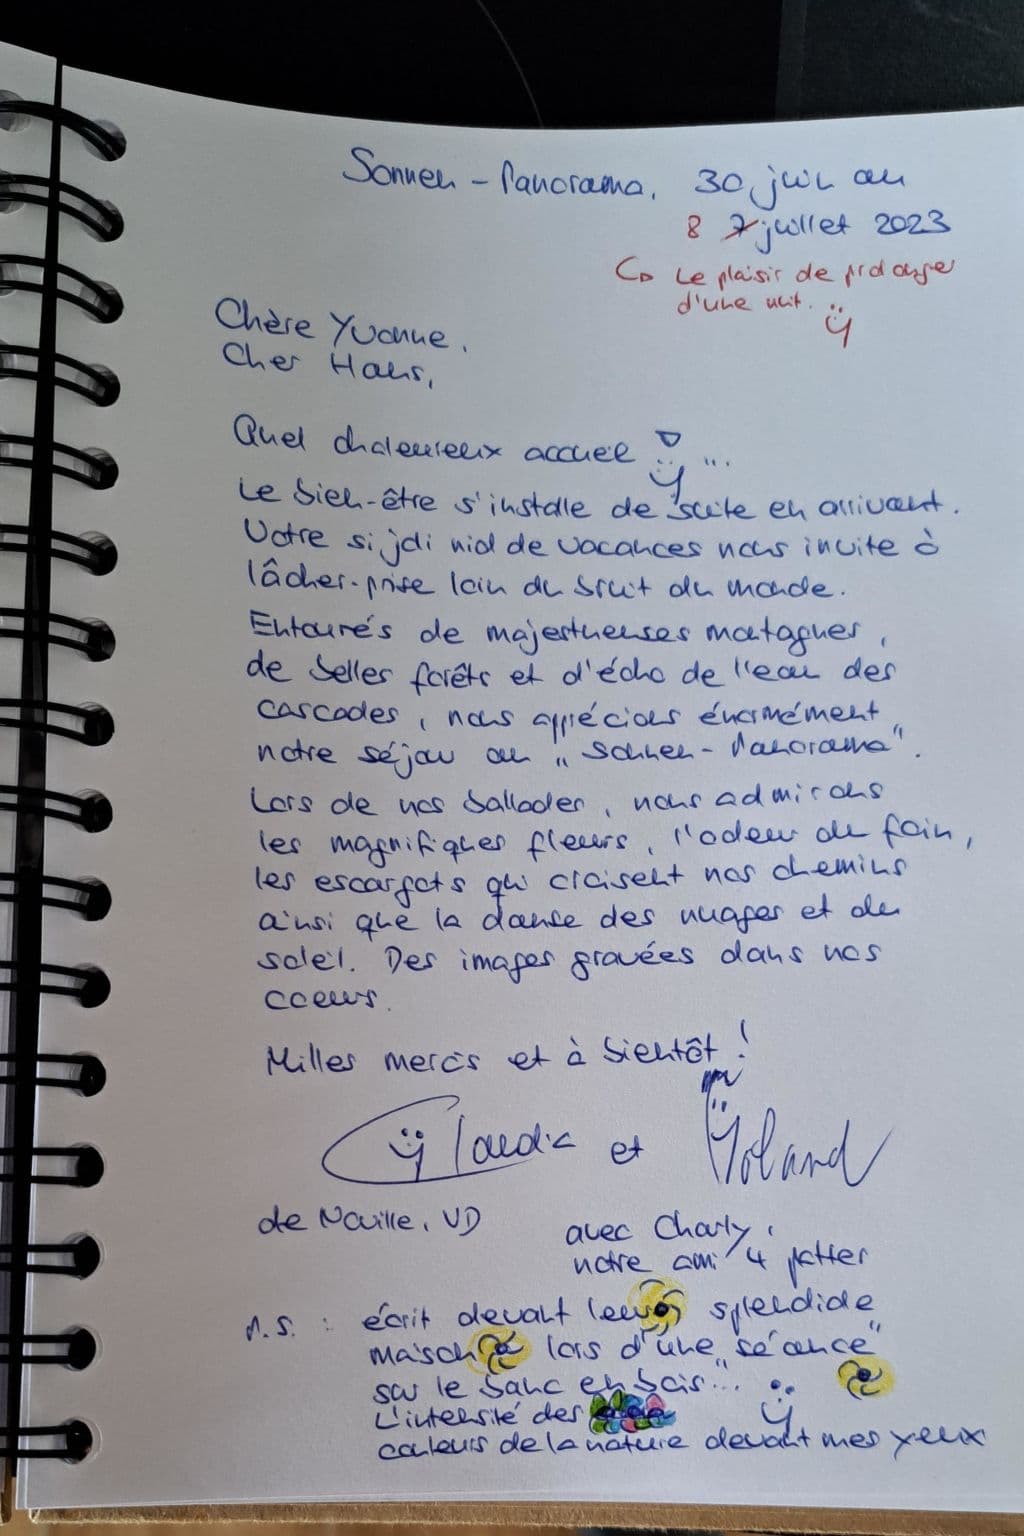 Sonnen - Panorama, 30 juin au
8 7 juillet 2023
Le plaisir de prolonger
d'une nuit.
Chère Yvonne,
Cher Hans,
Quel chaleureux accueil ! ...
Le bien-être s'installe de suite en arrivant.
Votre si joli nid de vacances nous invite à
lâcher-prise loin du bruit du monde.
Entourés de majestueuses montagnes,
de belles forêts et d'écho de l'eau des
cascades, nous apprécions énormément
notre séjour au „Sonnen-Panorama".
Lors de nos ballades, nous admirons
les magnifiques fleurs, l'odeur du foin,
les escargots qui croisent nos chemins
ainsi que la danse des nuages et du
soleil. Des images gravées dans nos
coeurs.
Milles mercis et à bientôt !
Claudia et Roland
de Naville, VD
avec Charly,
notre ami 4 pattes
P.S. : écrit devant leur splendide
maison lors d'une „séance"
sur le banc en bois...
L'intensité des
couleurs de la nature devant mes yeux